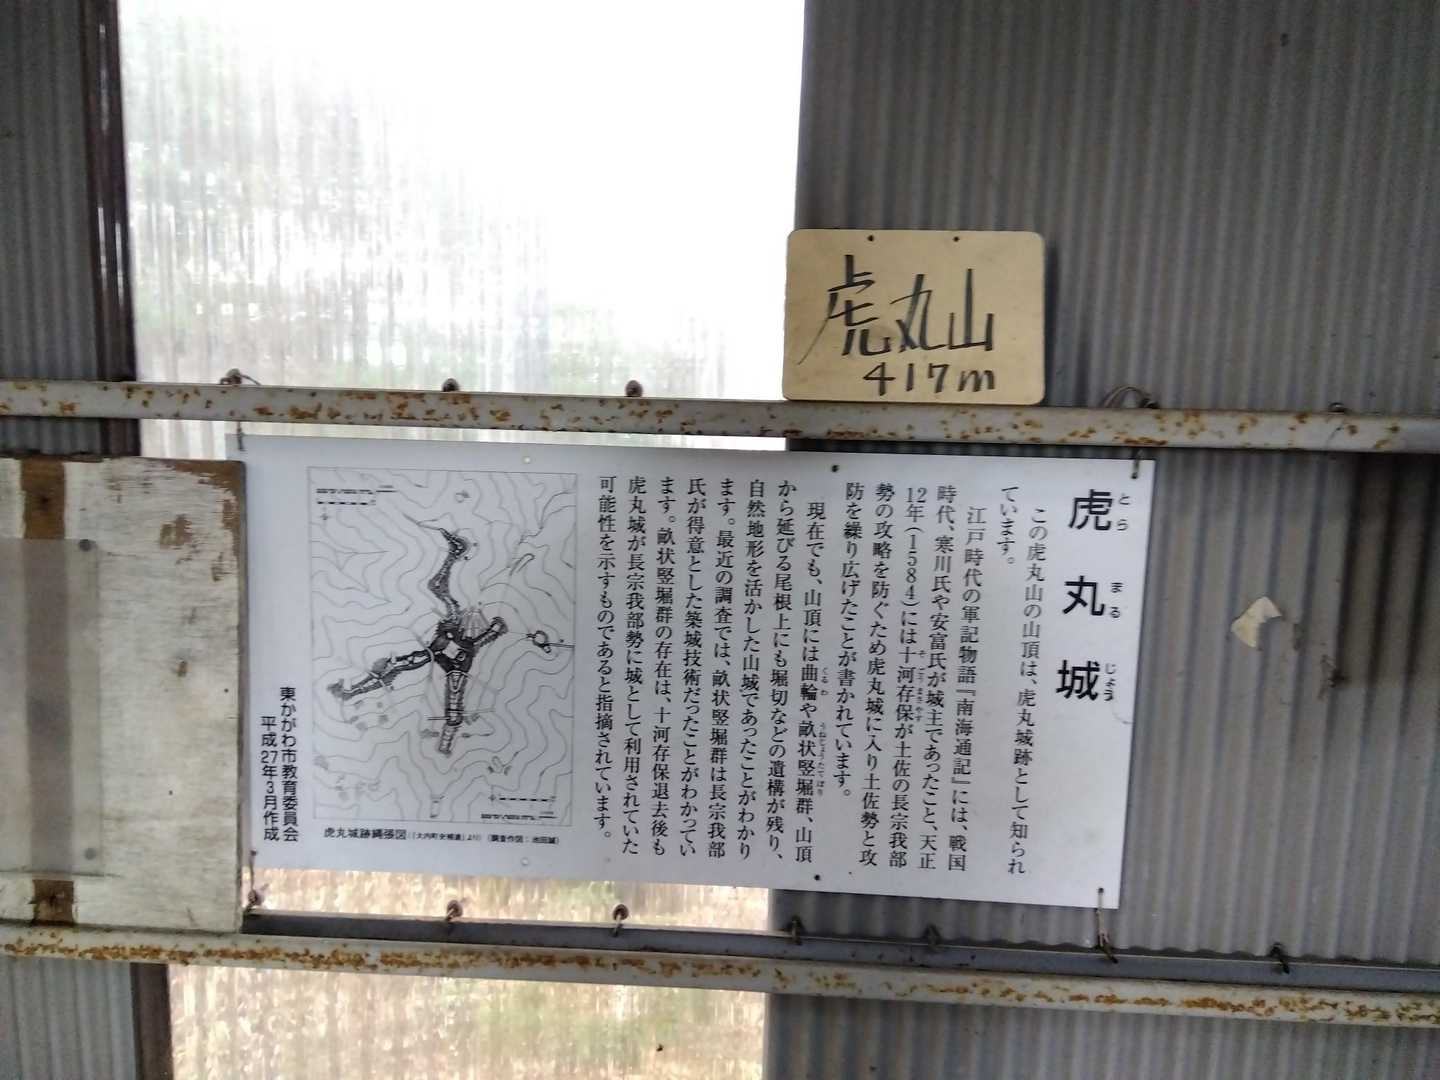 虎丸山
417m
虎丸城
とら
まる
じょう
この虎丸山の山頂は、虎丸城跡として知られ
ています。
江戸時代の軍記物語『南海通記』には、戦国
時代、寒川氏や安富氏が城主であったこと、天正
12年(1584)には十河存保が土佐の長宗我部
そごうまさやす
勢の攻略を防ぐため虎丸城に入り土佐勢と攻
防を繰り広げたことが書かれています。
現在でも、山頂には曲輪や畝状竪堀群、山頂
くるわ
うねじょうたてぼり
から延びる尾根上にも堀切などの遺構が残り、
自然地形を活かした山城であったことがわかり
ます。最近の調査では、畝状竪堀群は長宗我部
氏が得意とした築城技術だったことがわかってい
ます。畝状竪堀群の存在は、十河存保退去後も
虎丸城が長宗我部勢に城として利用されていた
可能性を示すものであると指摘されています。
虎丸城跡縄張図(「大内町史補遺」より)(調査作図:池田誠)
東かがわ市教育委員会
平成27年3月作成